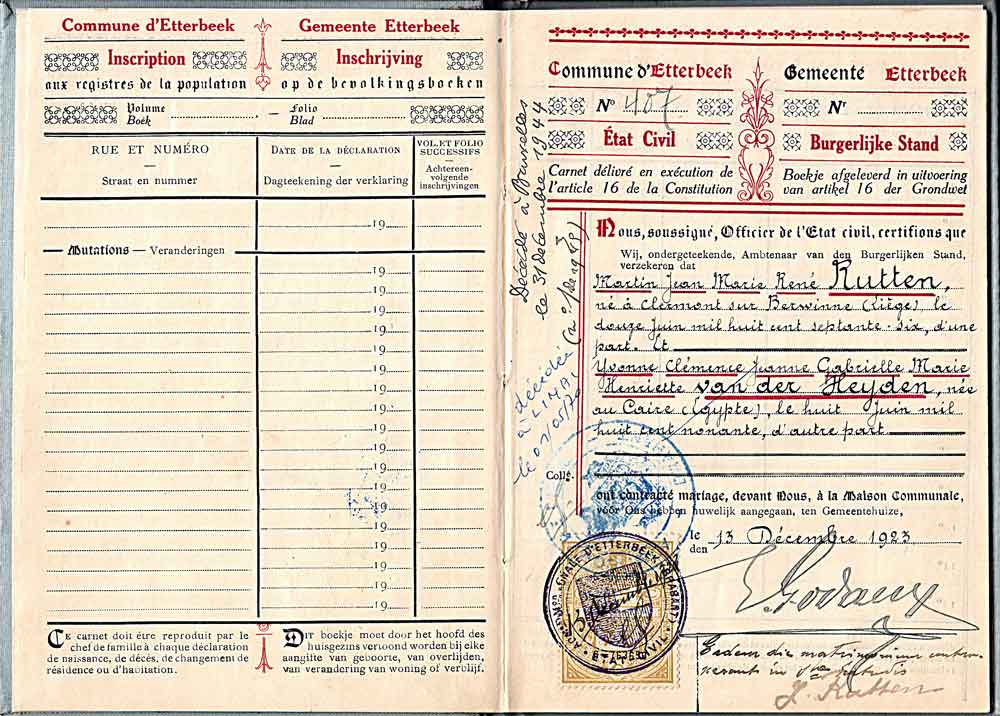 Commune d'Etterbeek
Inscription
aux registres de la population
Gemeente Etterbeek
Inschrijving
op de bevolkingsboeken
Volume
Boek
Folio
Blad
RUE ET NUMÉRO
Straat en nummer
DATE DE LA DÉCLARATION
Dagteekening der verklaring
VOL. ET FOLIO
SUCCESSIFS
Achtereen-
volgende
inschrijvingen
19
Mutations — Veranderingen
19
19
19
19
19
19
19
19
19
19
19
19
19
19
19
19
19
19
CE carnet doit être reproduit par le
chef de famille à chaque déclaration
de naissance, de décès, de changement de
résidence ou d'habitation.
DIT boekje moet door het hoofd des
huisgezins vertoond worden bij elke
aangifte van geboorte, van overlijden,
van verandering van woning of verblijf.
Commune d'Etterbeek
No 407
État Civil
Carnet délivré en exécution de
l'article 16 de la Constitution
Gemeente Etterbeek
Nr
Burgerlijke Stand
Boekje afgeleverd in uitvoering
van artikel 16 der Grondwet
Décédé à Bruxelles
le 31 décembre 1944
décédée
à LIMA,
le 01/05/70
Nous, soussigné, Officier de l'Etat civil, certifions que
Wij, ondergeteekende, Ambtenaar van den Burgerlijken Stand,
verzekeren dat
Martin Jean Marie René Rutten,
né à Clermont sur Berwinne (Liège) le
douze Juin mil huit cent septante-six, d'une
part. Et
Yvonne Clémence Jeanne Gabrielle Marie
Henriette van der Heyden, née
au Caire (Egypte), le huit Juin mil
huit cent nonante, d'autre part.
Coll.
ont contracté mariage, devant Nous, à la Maison Communale,
vóór Ons hebben huwelijk aangegaan, ten Gemeentehuize,
le
den
13 Décembre 1923
D'ETTERBEEK (BRABANT)
ETAT CIVIL
Eadem die matrimonium contra-
xerunt in
Rutten